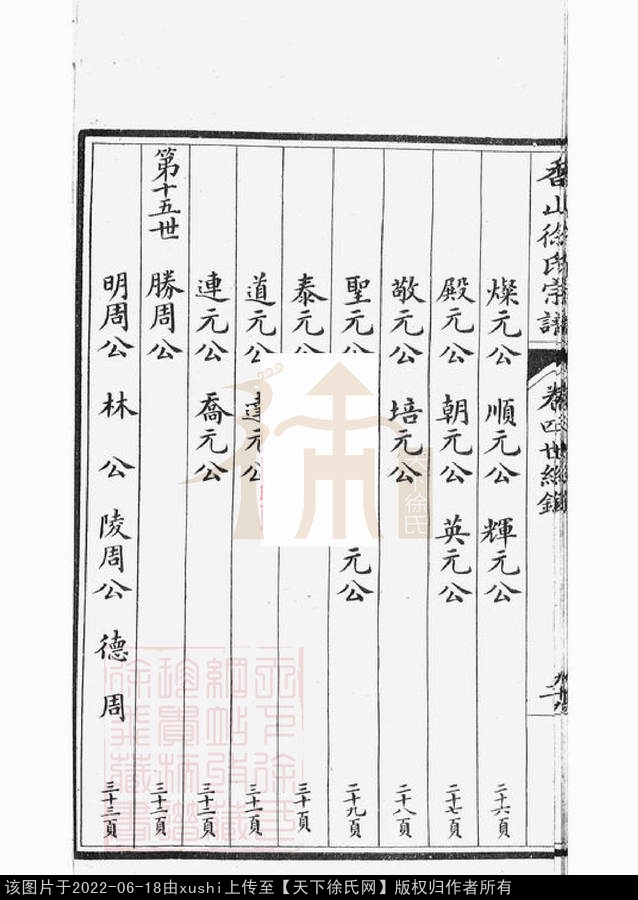 香山徐氏宗譜 卷四 世系錄
燦元公 順元公 輝元公 二十六頁
殿元公 朝元公 英元公 二十七頁
敬元公 培元公 二十八頁
聖元 元公 二十九頁
泰元 三十頁
道元 達元 三十一頁
連元公 喬元公 三十二頁
第十五世 勝周公 三十二頁
明周公 林公 陵周公 德周 三十三頁
徐氏
该图片于2022-06-18由xushi上传至【天下徐氏网】版权归作者所有